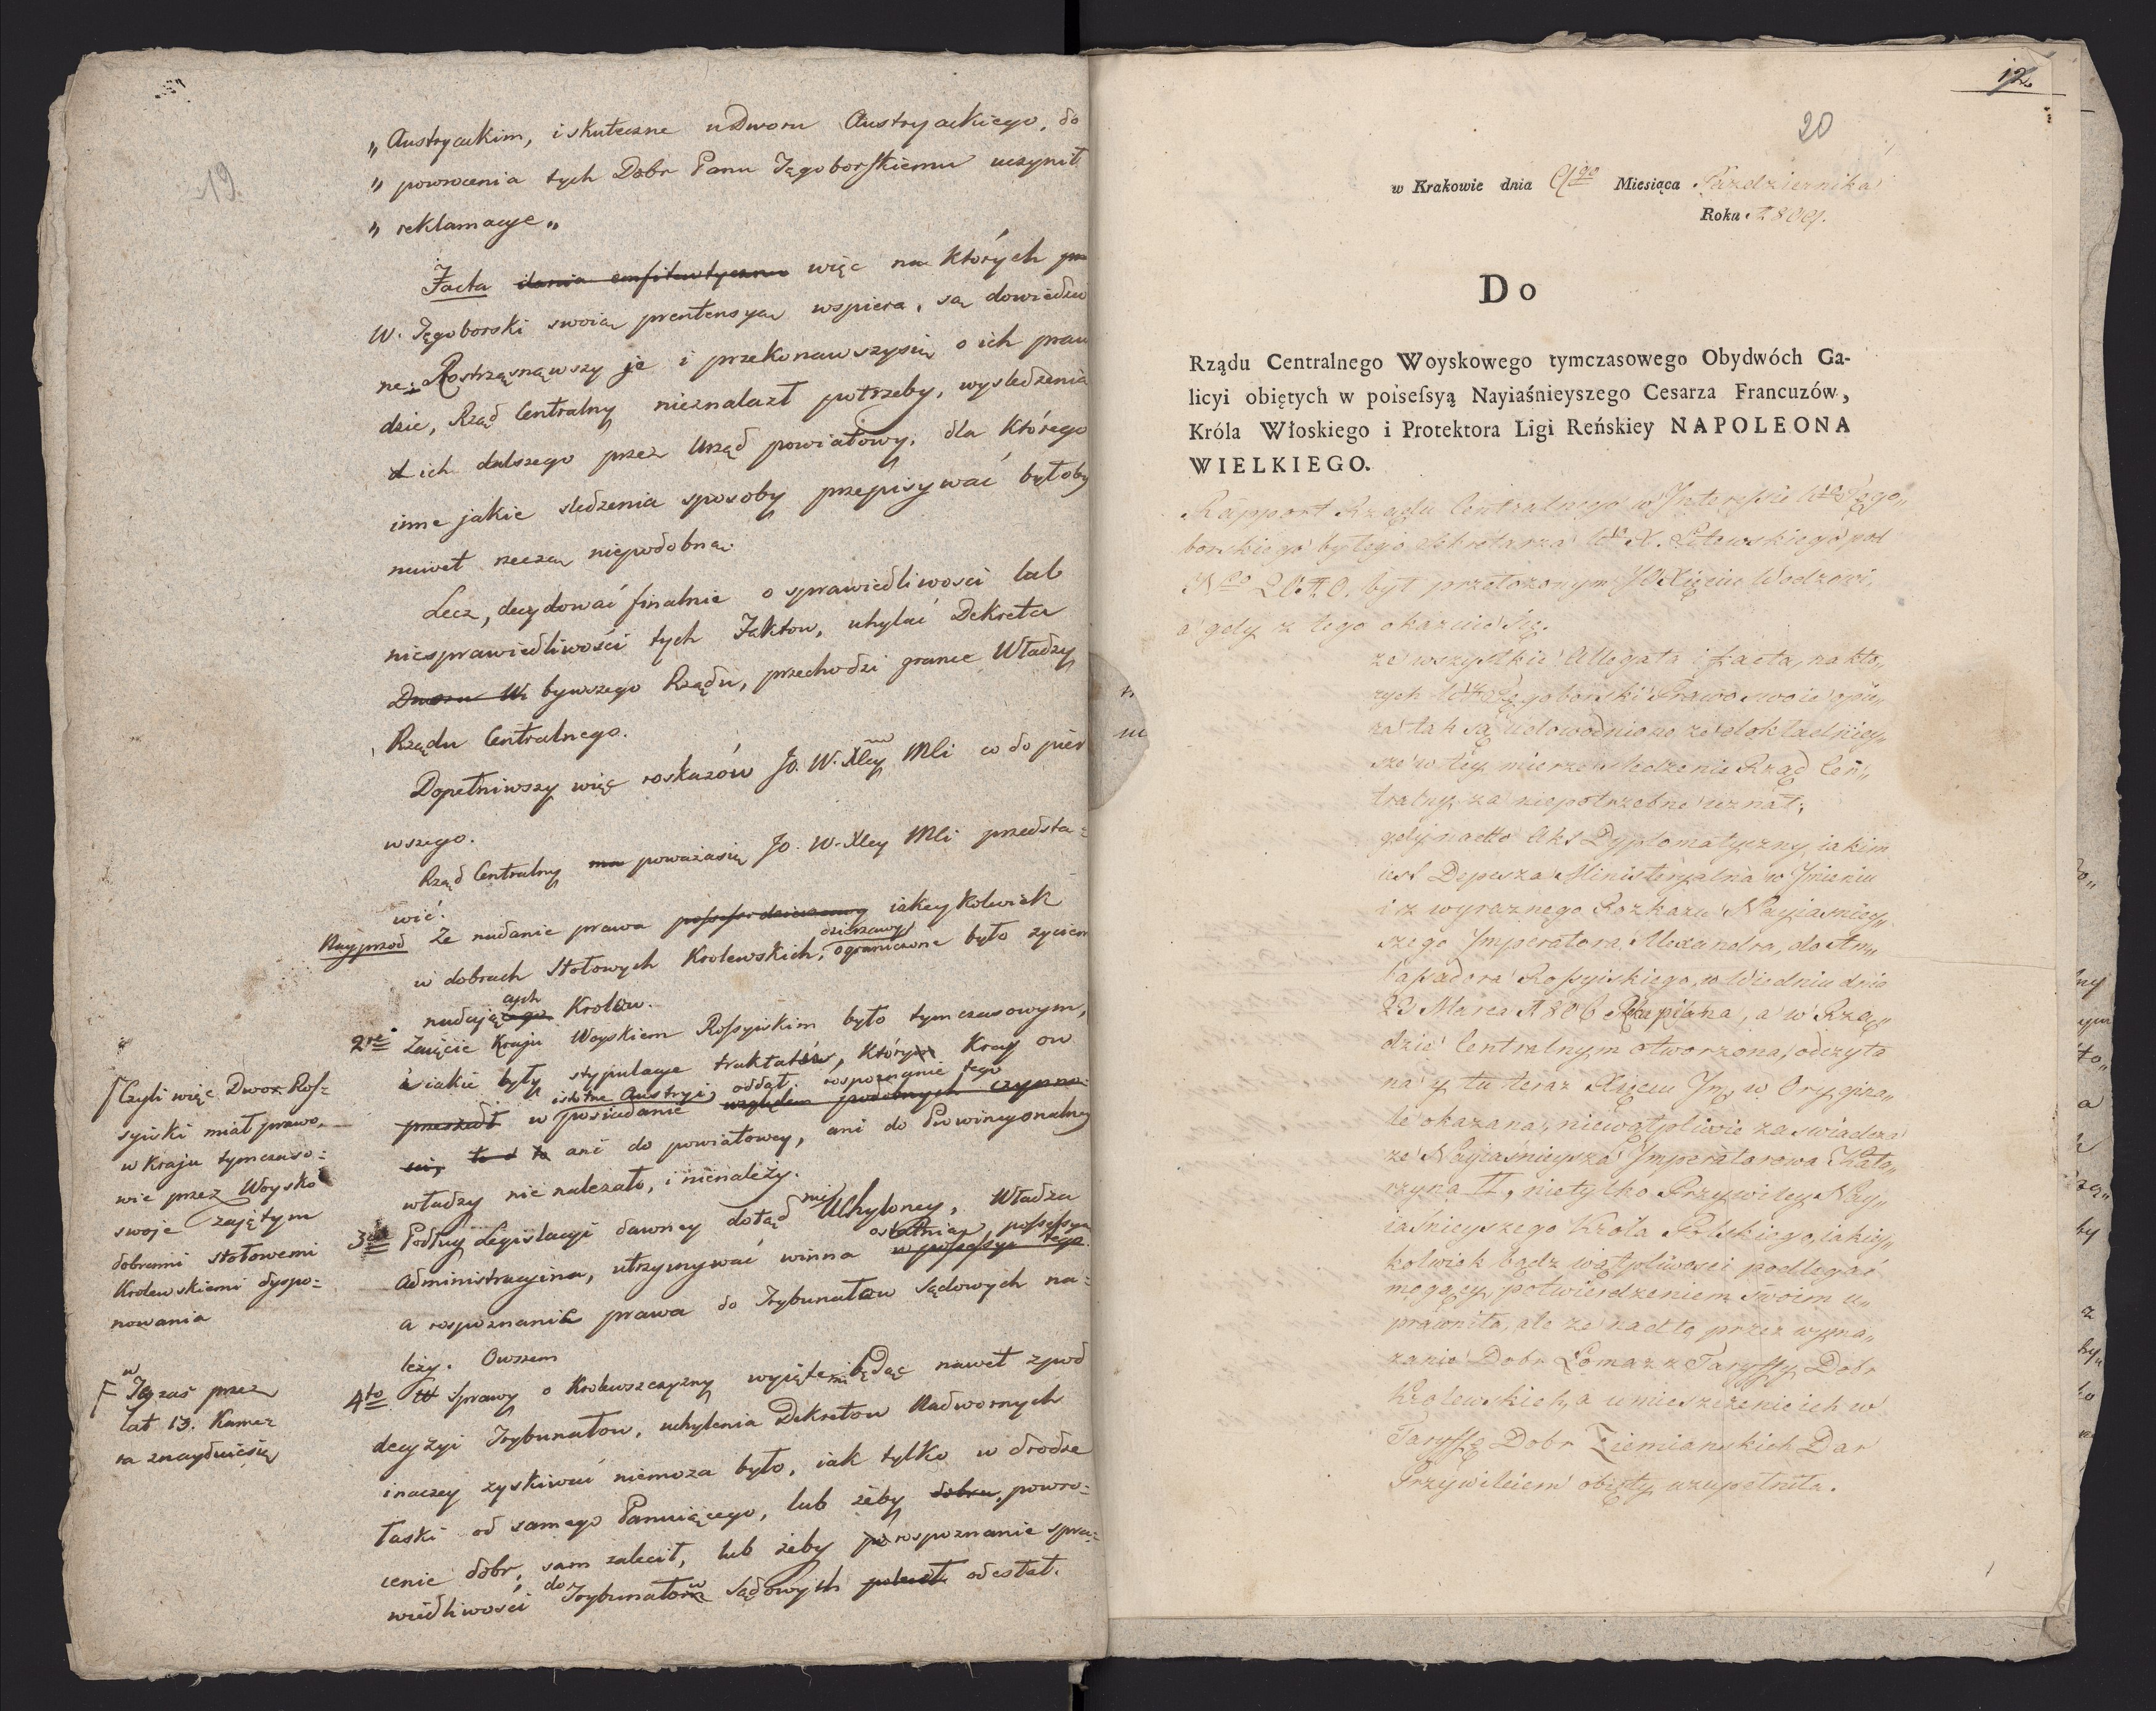 19.
„ Austryackim, i skuteczne u Dworu Austryackiego, do
„ powrocenia tych Dobr Panu Tęgoborskiemu uczynił
„ reklamacye „
Facta dania emfiteutyczne więc na których
W. Tęgoborski swoią prentensyą wspiera, są dowiedzio
ne; Rostrząsnąwszy je i przekonawszysię o ich praw
dzie, Rząd Centralny nieznalazł potrzeby, wysledzenia
ich dalszego przez Urząd powiatowy, dla którego
inne jakie sledzenia sposoby przepisywać byłoby
nawet rzeczą niepodobną.
Lecz, decydować finalnie o sprawiedliwosci lub
niesprawiedliwości tych Faktow, uhylać Dekreta
Dworu W. bywszego Rządu, przechodzi granice Władzy
Rządu Centralnego.
Dopełniwszy więc roskazów Jo. W. Xcey Mći co do pier
wszego.
Rząd Centralny poważasię Jo. W. Xcey Mći przedsta=
wić.
Nayprzod Ze nadanie prawa iakieykolwiek
dzierzawy
w dobrach Stołowych Krolewskich, ograniczone było zyciem
cych
nadają Krolow.
2re Zaięcie Kraju Woyskiem Rossyiskim było tymczasowym,
iakie były stypulacye traktatów, który Kray ow
istotne Austryi, oddał, rospoznanie tego
przeszedł w posiadanie względem podobnych czynno=
sci, ani do powiatowey, ani do Prowincyonalney
władzy nie nalezało, i nienależy.
3cie Podług Legislacyi dawney dotąd nie Uchyloney, Władza
ostatnią possessyą
Administracyina, utrzymywać winna w possessyi tego
a rospoznanie prawa do Trybunałow Sądowych na=
leży. Owszem
4to Sprawy o Krolewszczyzny wyięte mi będąc nawet zpod
decyzyi Trybunałow, uchylenia Dekretow Nadwornych
inaczey zyskiwać niemoza było, iak tylko w drodze
łaski od samego Panuiącego, lub żeby dobra, powro=
cenie dobr, sam zalecił, lub żeby rospoznanie spra=
wiedliwości do Trybunałow Sądowych odesłał.
Czyli więc Dwor Ros=
syiski miał prawo,
w Kraju tymczaso=
wie przez Woysko
swoje zajętym
dobrami stołowemi
Krolewskiemi dyspo=
nowania
w
Tey zaś przez
lat 13. Kamer
ra znayduiesię
12.
20
w Krakowie dnia 9go Miesiąca Pazdziernika
Roku 1809.
Do
Rządu Centralnego Woyskowego tymczasowego Obydwóch Ga-
licyi obiętych w poisefsyą Nayiaśnieyszego Cesarza Francuzów,
Króla Włoskiego i Protektora Ligi Reńskiey NAPOLEONA
WIELKIEGO.
Rapport Rządu Centralnego w Interessie Wgo Tego„
borskiego byłego Sekretarza X. Litewskiego pod
Nro był przełozonym JO Xięciu Wodzowi,
a gdy z tego okazuie się.
ze wszystkie Allegata i facta, na któ„
rych Wny Tęgoborski Prawo swoie opie„
ra tak są udowodnione ze dokładniey„
sze w tey mierze sledzenie Rząd Cen„
tralny za niepotrzebne uznał;
gdy nadto Akt Dyplomatyczny iakim
iest Depesza Ministeryalna w Imieniu
i z wyraznego Rozkazu Nayiasniey„
szego Imperatora Alexandra, do Am„
bassadora Rossyiskiego w Wiedniu dnia
22 Marca 1806 pisana, a w Rzą„
dzie Centralnym otworzona, odczyta
na y tu teraz Xięciu Jmć w Orygina„
le okazana, niewątpliwie zaswiadcza
ze Nayiaśnieysza Imperatorowa Kata„
rzyna II, nietylko Przywiley Nay„
iaśnieyszego Króla Polskiego, iakiey„
kolwiek bądz wątpliwosci podlegać
mogący, potwierdzeniem swoim u„
prawniła, ale ze nadto przez wyma„
zanie Dobr Łomazz Taryffy Dobr
Krolewskich, a umieszczenie ich w
Taryffę Dobr Ziemianskich Dar
Przywileiem obięty uzupełniła.